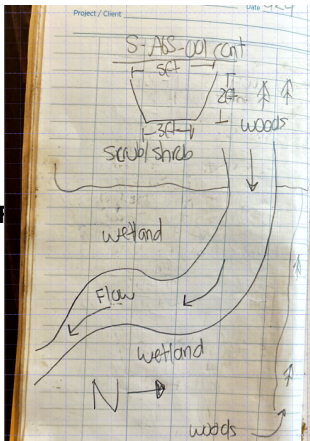 Project / Client
Date
S-ABS-001 cont
5ft
2ft
3ft
woods
scrub/shrub
wetland
Flow
wetland
N
woods